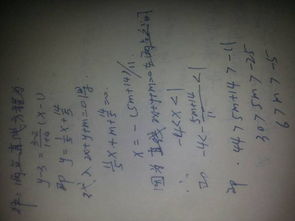 解：两点直线方程为
y-3 = (x-1)
即 y = 1/5 x + 14/5
代入 2x+y+m=0 得
11/5 x + m + 14/5 = 0
x = -(5m+14)/11
因为直线 2x+y+m=0 与
∴ -4<x<1
即 -4<-(5m+14)/11<1
即 44>5m+14>-11
30>5m>-25
6>m>-5